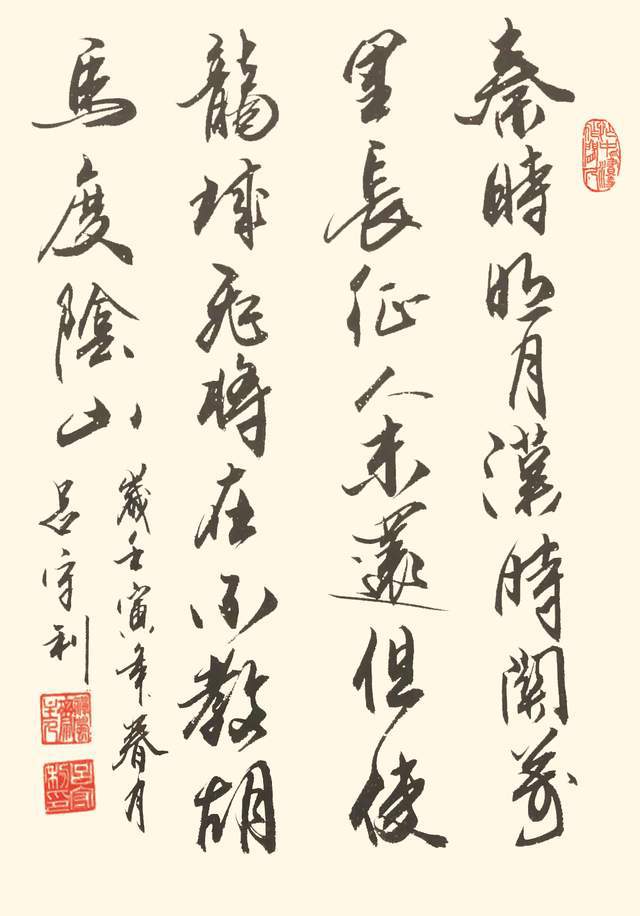 秦時明月漢時關萬
里長征人未還但使
龍城飛將在不教胡
馬度陰山
歲壬寅年春月
吕守利